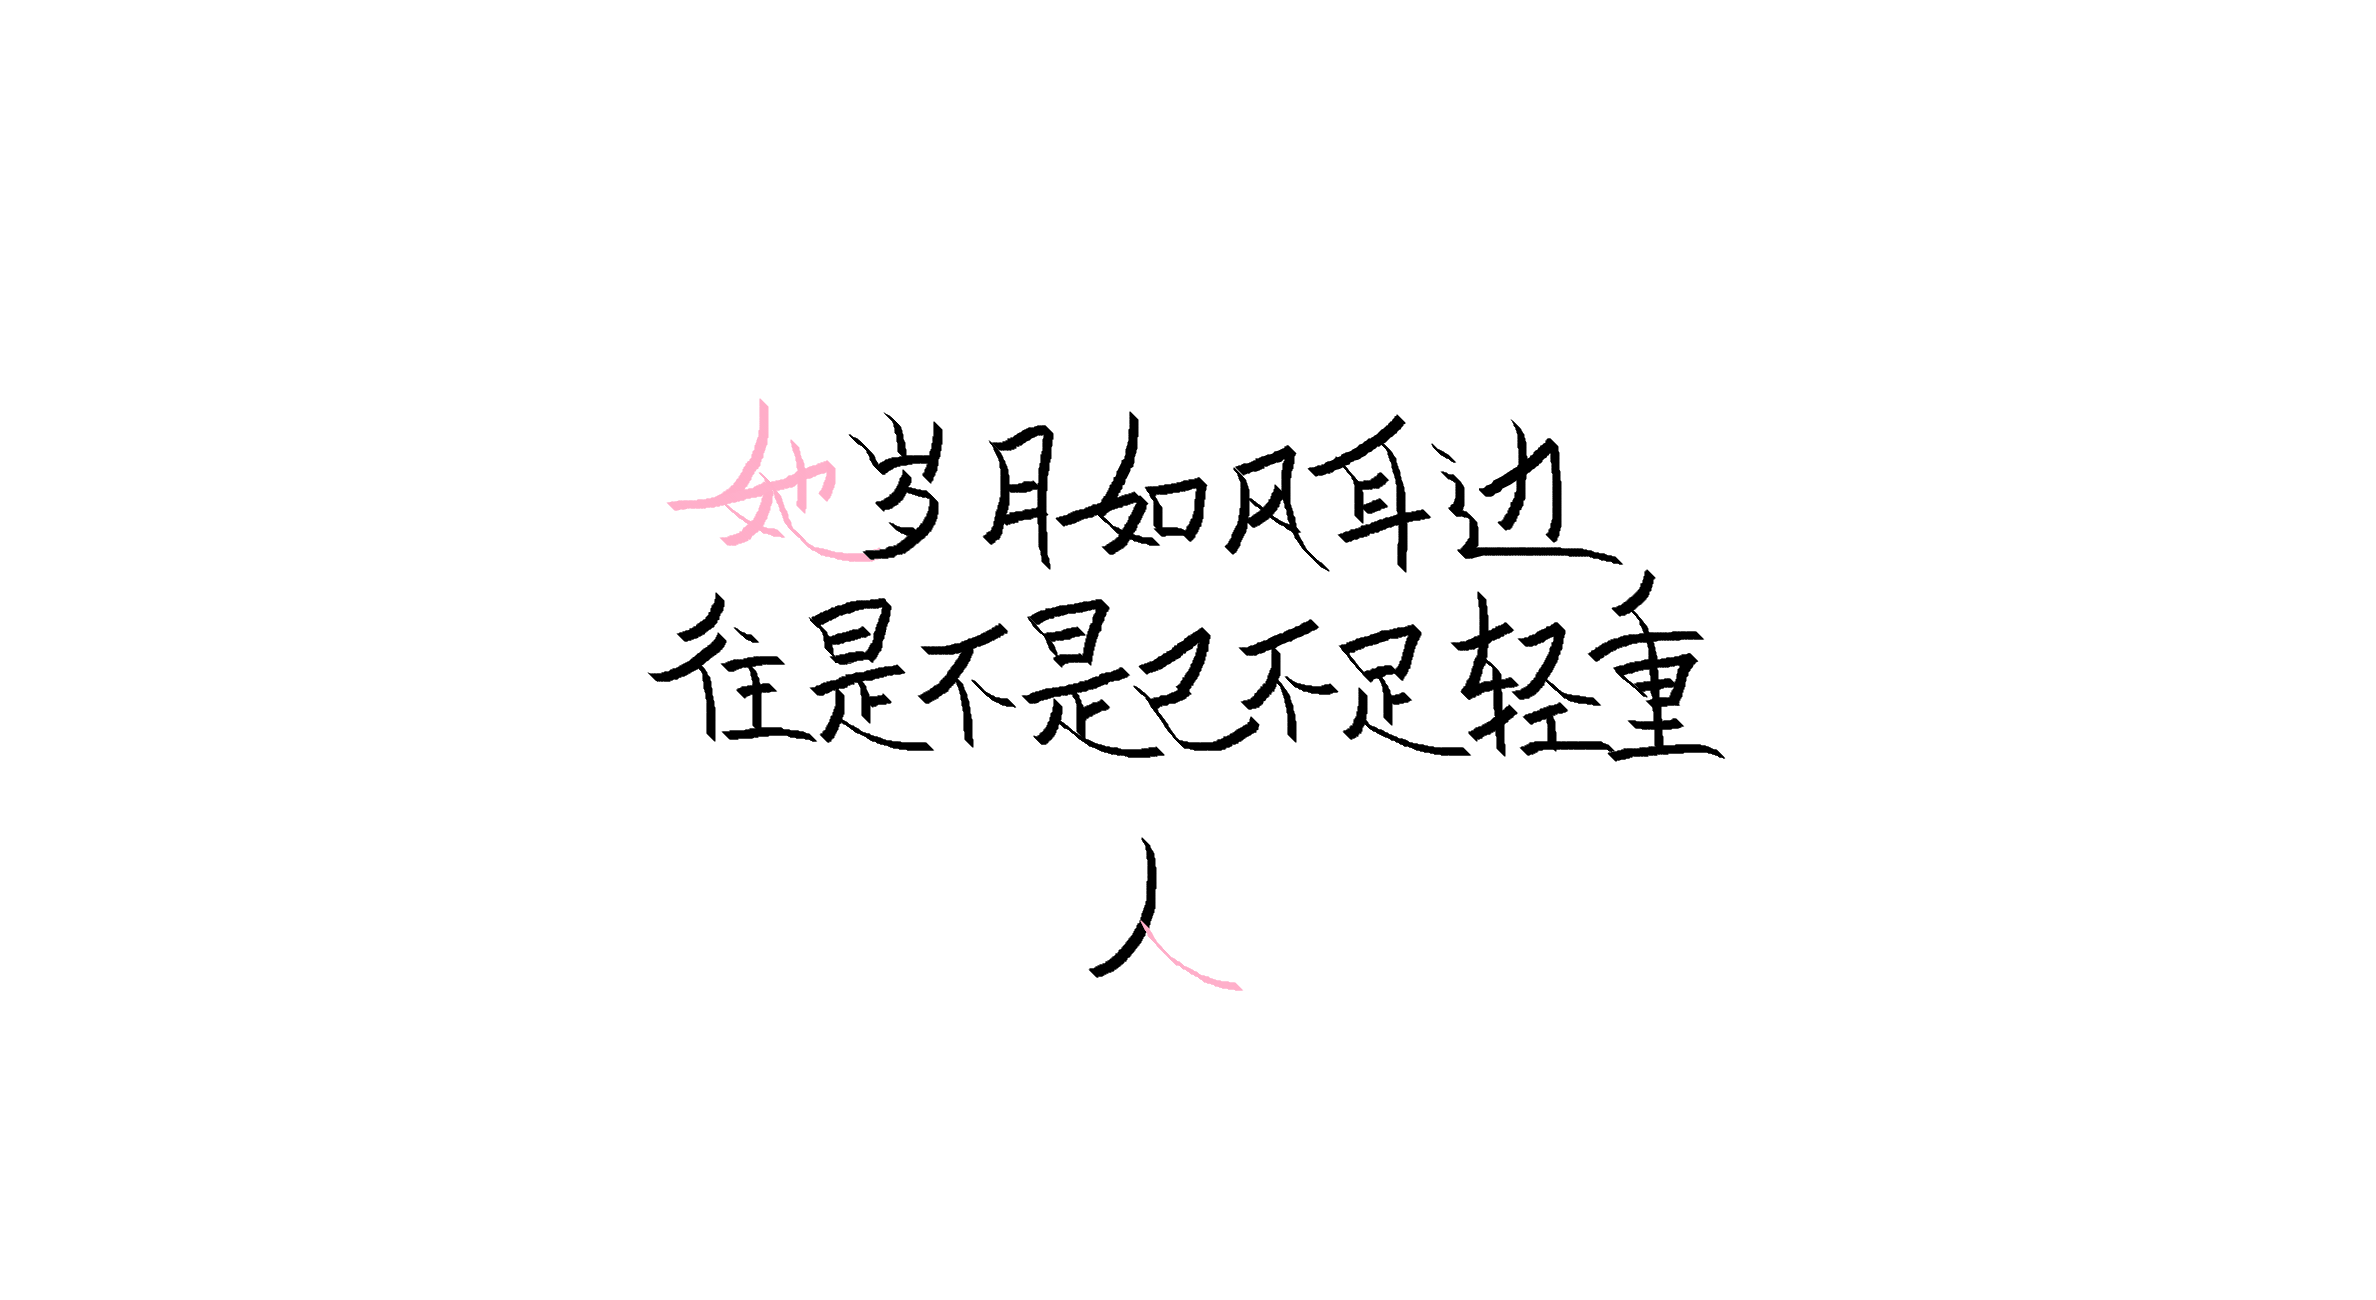 她岁月如风耳边
往是不是已不足轻重
人